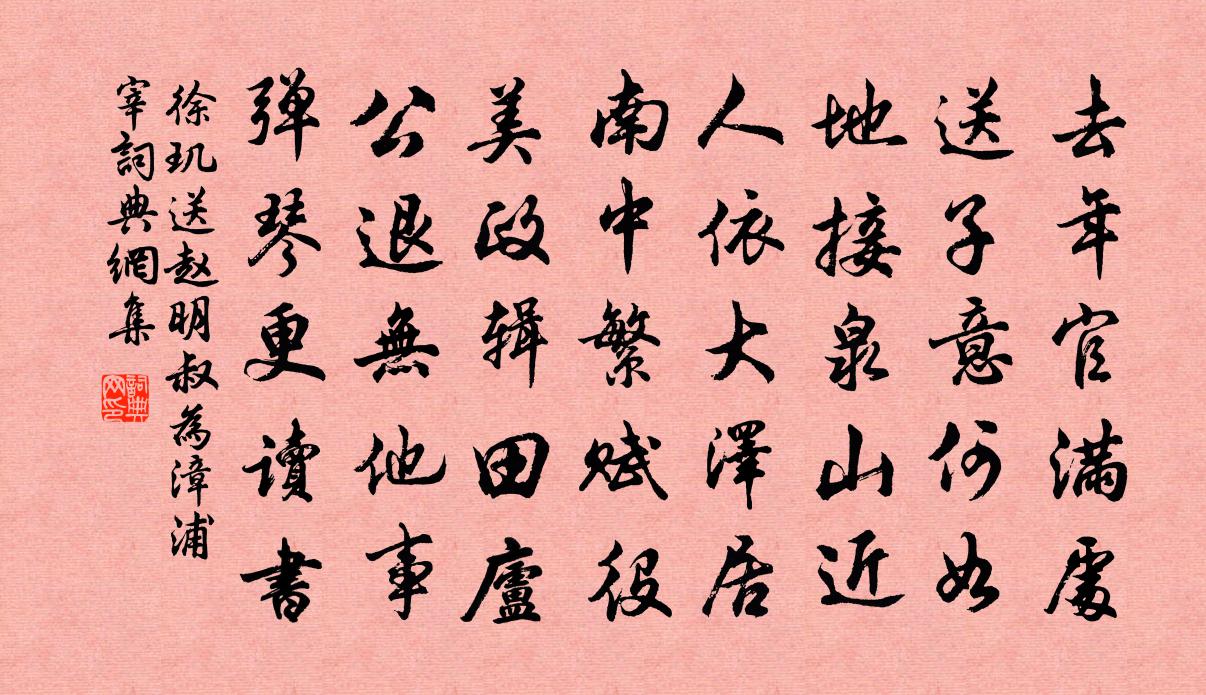 去年官满處
送子意何如
地接泉山近
人依大澤居
南中繁赋役
美政辑田廬
公退無他事
弹琴更读書
徐玑送赵明叔為漳浦
宰詞典網集
詞典网印